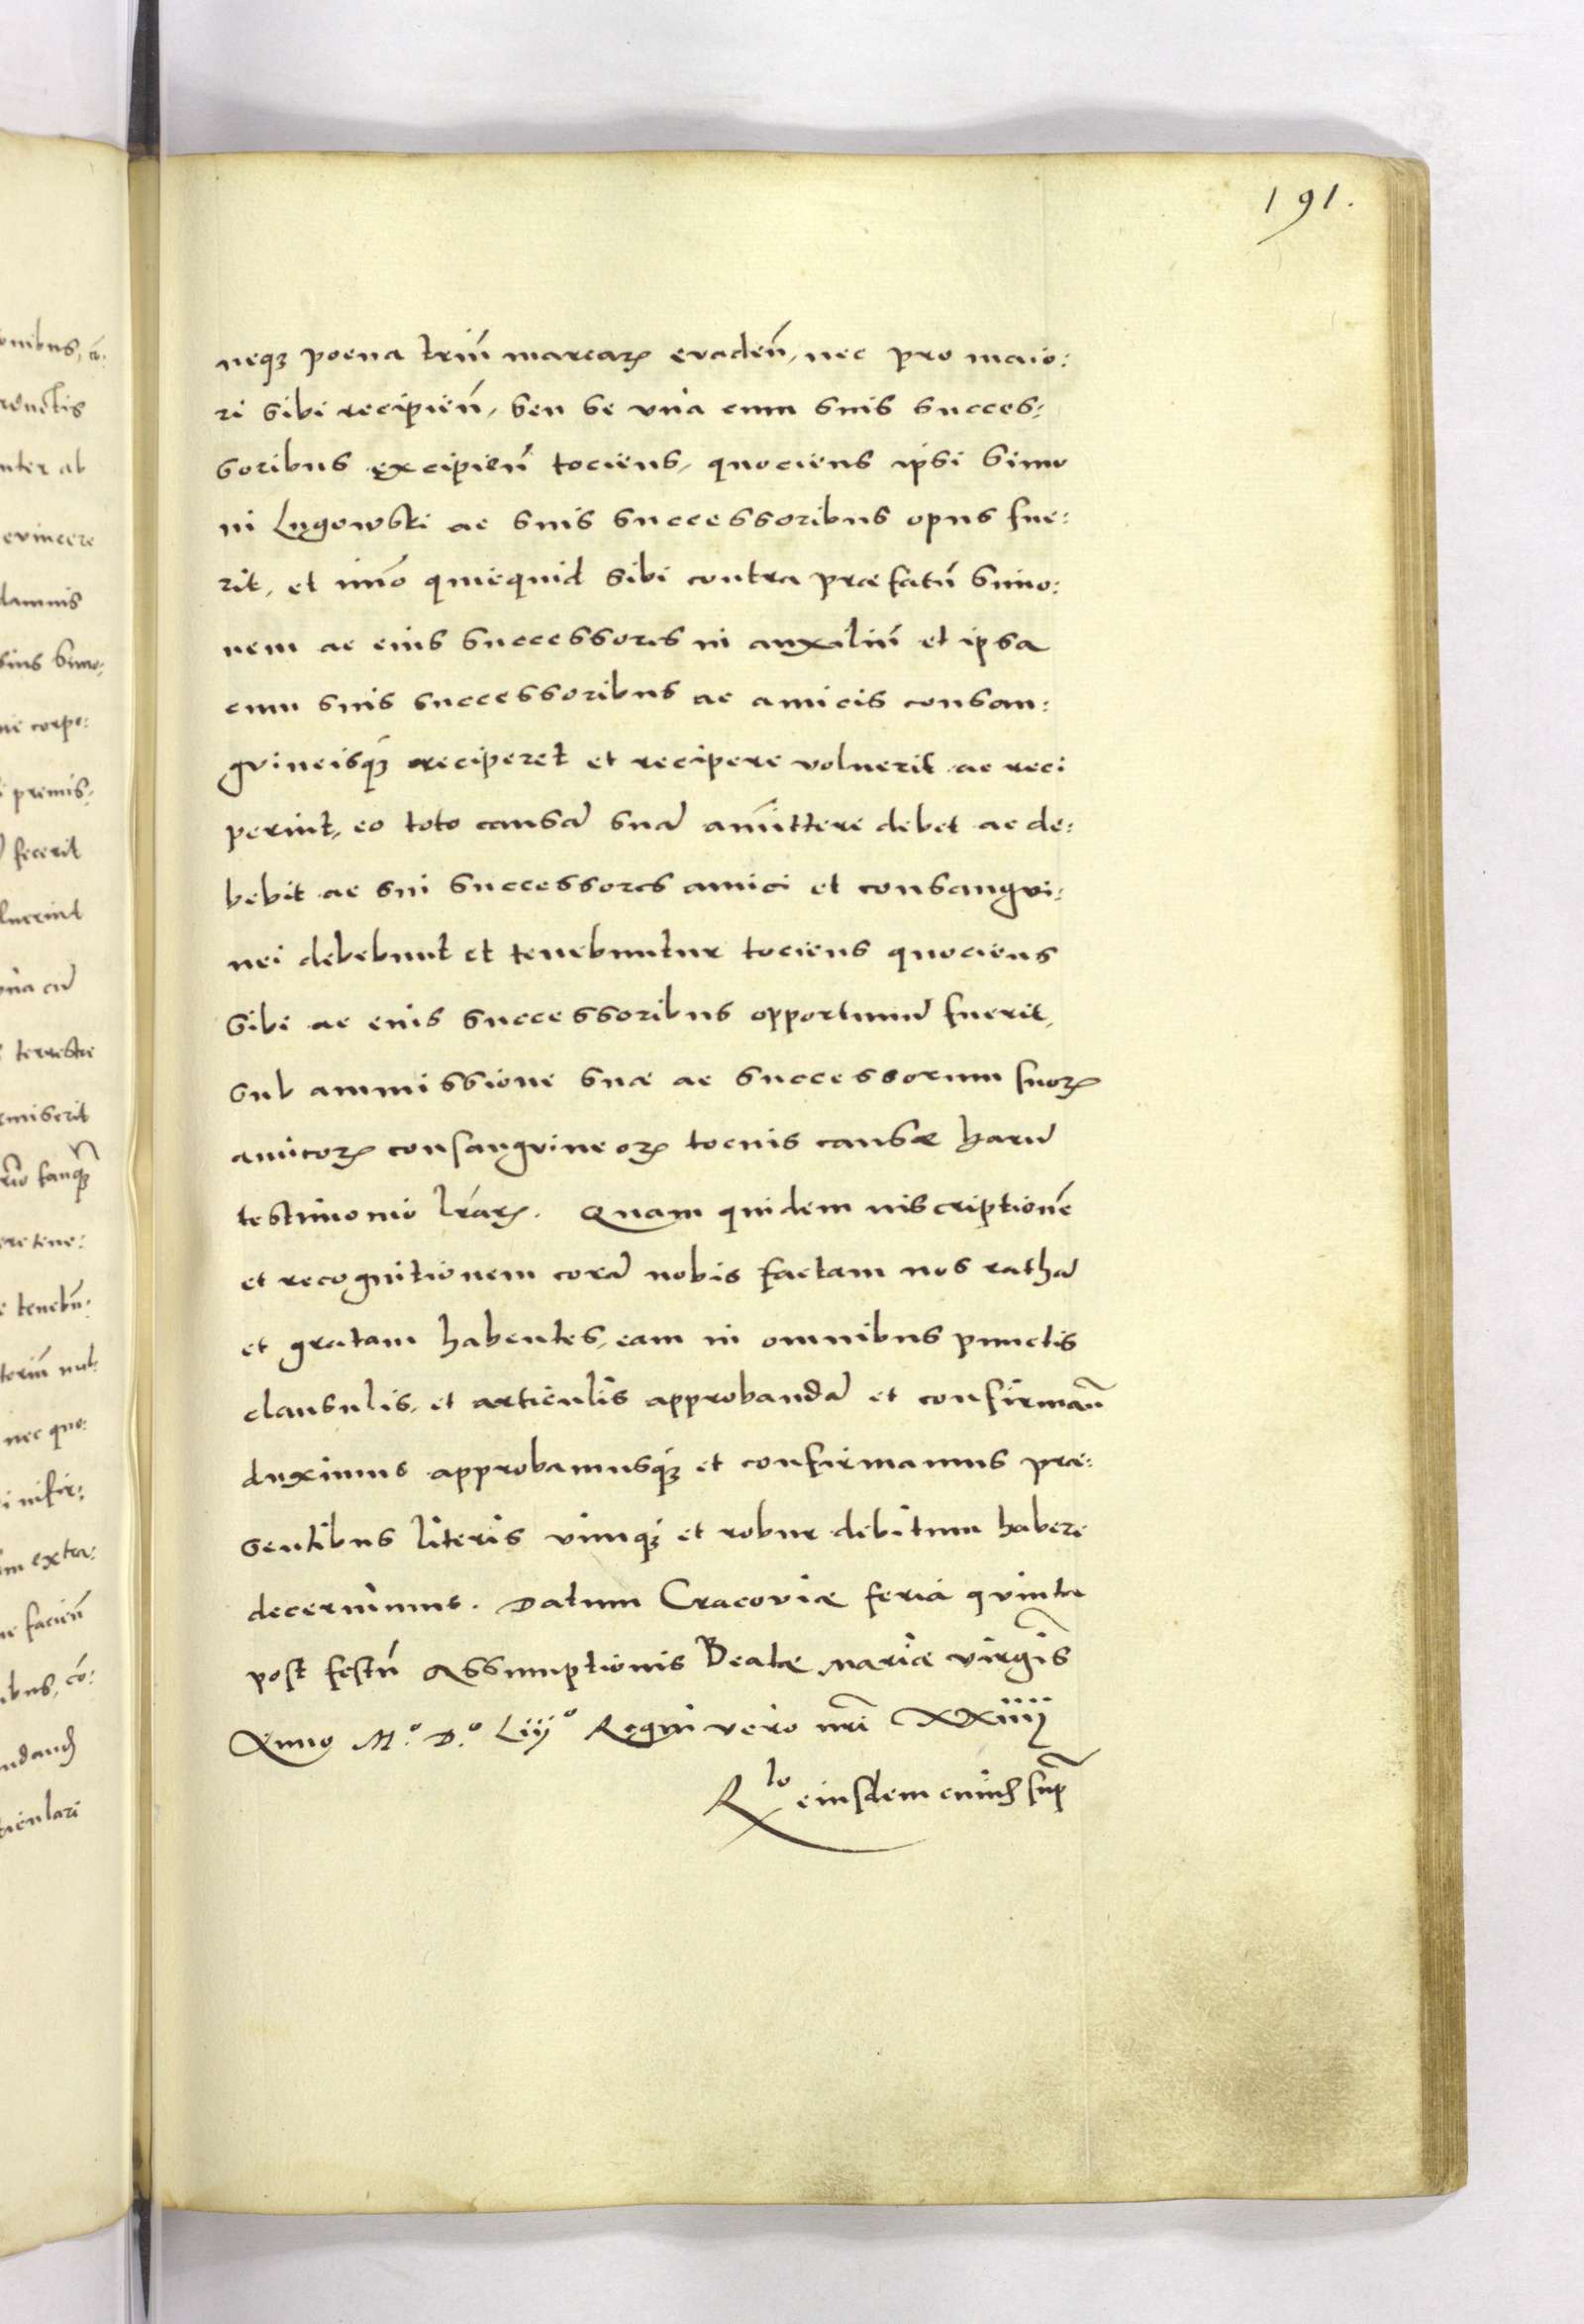 191.
neqꝫ poena triũ marcaꝝ evadeñ, nec pro maio:
ri sibi recipieñ, seu se vna cum suis succes:
soribus excipieñ tociens, quociens ipsi Simo
ni Lugowski ac suis successoribus opus fue:
rit, et im̃o quicquid sibi contra præfatũ Simo:
nem ac eius successores in auxiliũ et ipsa
cum suis successoribus ac amicis consan:
gvineisqꝫ reciperet et recipere voluerit ac reci
perint, eo toto causã suã amittere debet ac de:
bebit ac sui successores amici et consangvi:
nei debebunt et tenebuntur tociens quociens
sibi ac eius successoribus opportunũ fuerit,
sub ammissione suæ ac successorum suoꝝ
amicoꝝ consangvineoꝝ tocius causæ harũ
testimonio lr̃aꝝ. Quam quidem inscriptionẽ
et recognitionem corã nobis factam nos rathã
et gratam habentes, eam in omnibus punctis
clausulis, et articulis approbandã et confirmañ
duximus approbamusqꝫ et confirmamus præ:
sentibus literis vimqꝫ et robur debitum habere
decernimus. Datum Cracoviæ feria qvinta
post festũ Assumptionis Beatæ Mariæ virginis
Anno Mº. Dº. Liijº Regni vero nr̃i XXiiij
Rlo eiusdem cuius supͣ
onibus, cõ:
uinctis
nter ab
evincere
damnis
sius Simo:
ne corpo:
i premis:
fecerit
luerint
vna cũ
terrestre
emiserit
ere tene:
e tenebũ:
nec quo:
i infir:
m extra:
e facieñ
ibus, cõ:
ticulari